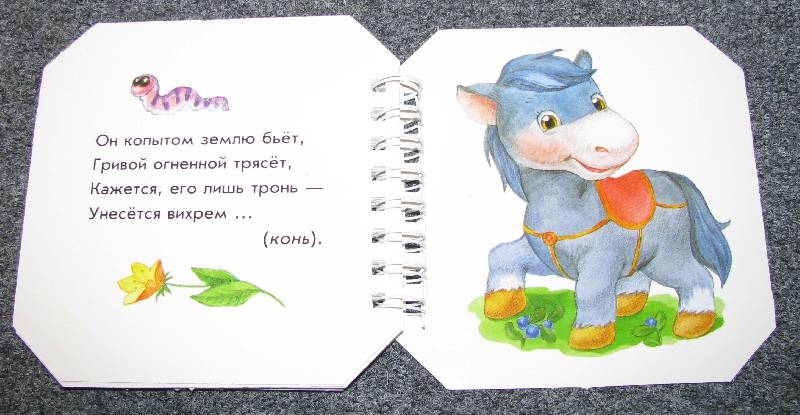 Он копытом землю бьёт,
Гривой огненной трясёт,
Кажется, его лишь тронь —
Унесётся вихрем ...
(конь).